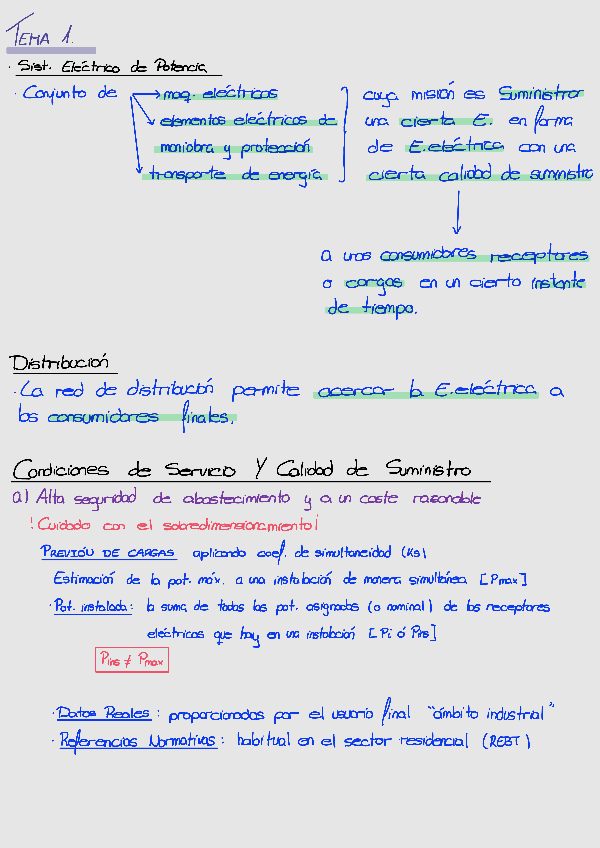 TEMA 1.
· Sist. Eléctrico de Potencia
· Conjunto de → maq. eléctricas
elementos eléctricos de
maniobra y protección
transporte de energía
cuya misión es Suministrar
una cierta E. en forma
de E.eléctrica con una
cierta calidad de suministro
a unos consumidores receptores
o cargas en un cierto instante
de tiempo.
Distribución
· La red de distribución permite acercar la E.eléctrica a
los consumidores finales.
Condiciones de Servicio Y Calidad de Suministro
a) Alta seguridad de abastecimiento y a un coste rasonable
! Cuidado con el sobredimensionamiento!
PREVIÓN DE CARGAS aplicando coef. de simultaneidad (Ks)
Estimación de la pot. máx. a una instalación de manera simultánea [Pmax]
· Pot. instalada: la suma de todas las pot. asignadas (o nominal) de los receptores
eléctricos que hay en una instalación [Pi ó Pins]
Pins ≠ Pmax
· Datos Reales: proporcionados por el usuario final "ámbito industrial"
· Referencias Normativas: habitual en el sector residencial (REBT)